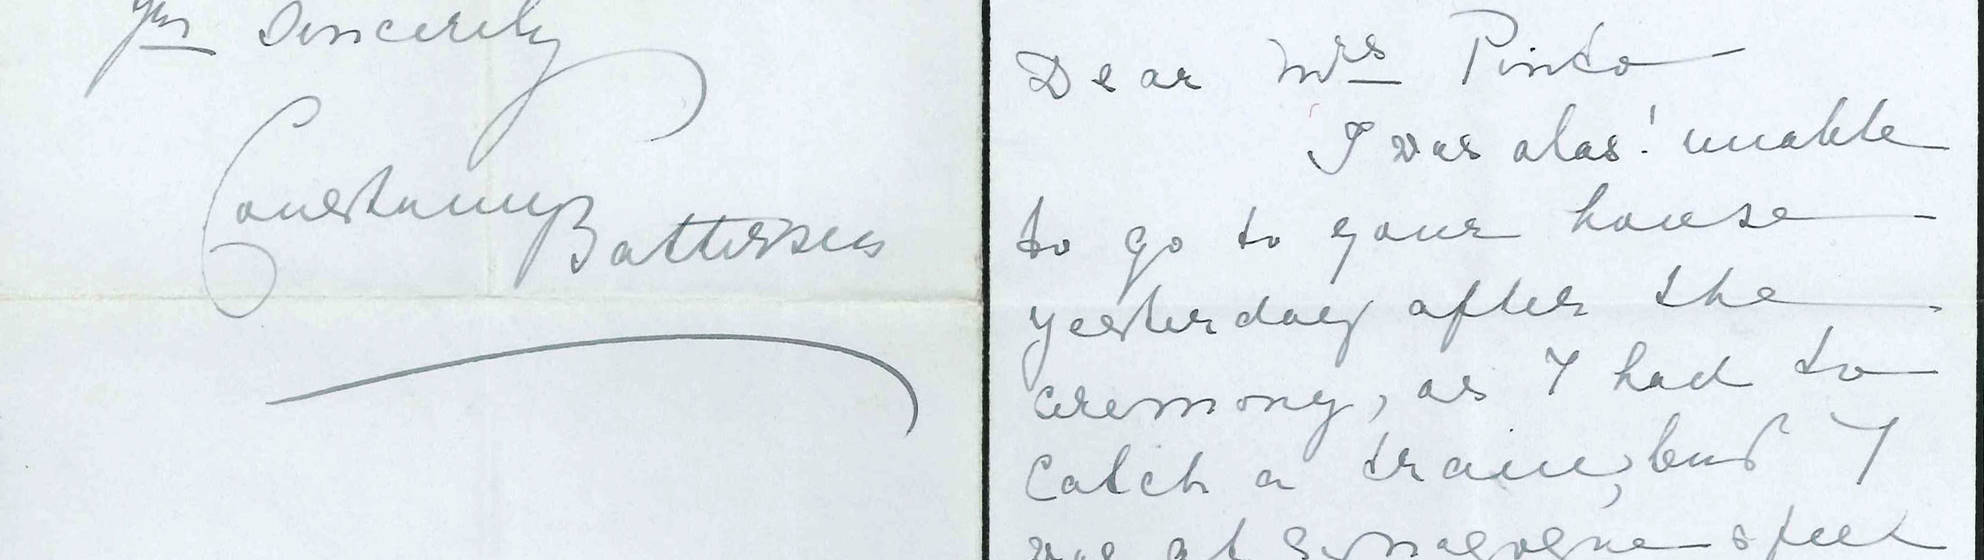 Yrs Sincerely
Constance
Battersea
Dear Mrs Pinto
I was alas! unable
to go to your house
yesterday after the
ceremony, as I had to
catch a train, but I
was at Synagogue &